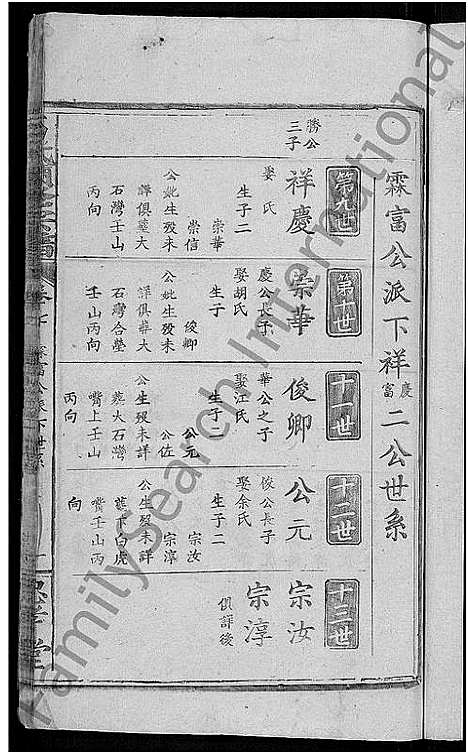 霖富公派下祥慶富二公世系
第九世
勝公三子
祥慶
娶氏
生子二
崇華
崇信
公妣生歿未
詳俱葬大
石灣壬山
丙向
第十世
崇華
慶公長子
娶胡氏
生子一
俊卿
公妣生歿未
詳俱葬大
石灣合塋
壬山丙向
十一世
俊卿
華公之子
娶江氏
生子二
公元
公佐
公生歿未詳
葬火石灣
嘴上壬山
丙向
十二世
公元
俊公長子
娶余氏
生子二
宗汝
宗淳
公生歿未詳
葬下白虎
嘴壬山丙
向
十三世
宗汝
宗淳
俱詳後
卷七 霖富公派下世系
FamilySearch International